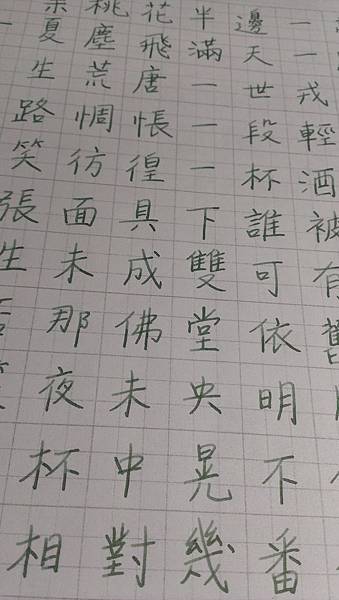 桃花半邊一
夏塵飛滿天一
生荒唐一世戎
路惆悵一段輕
笑彷徨一杯酒
張面具下誰被
生未成雙可有
那佛堂依舊
夜未央明
杯中晃不
相對幾番